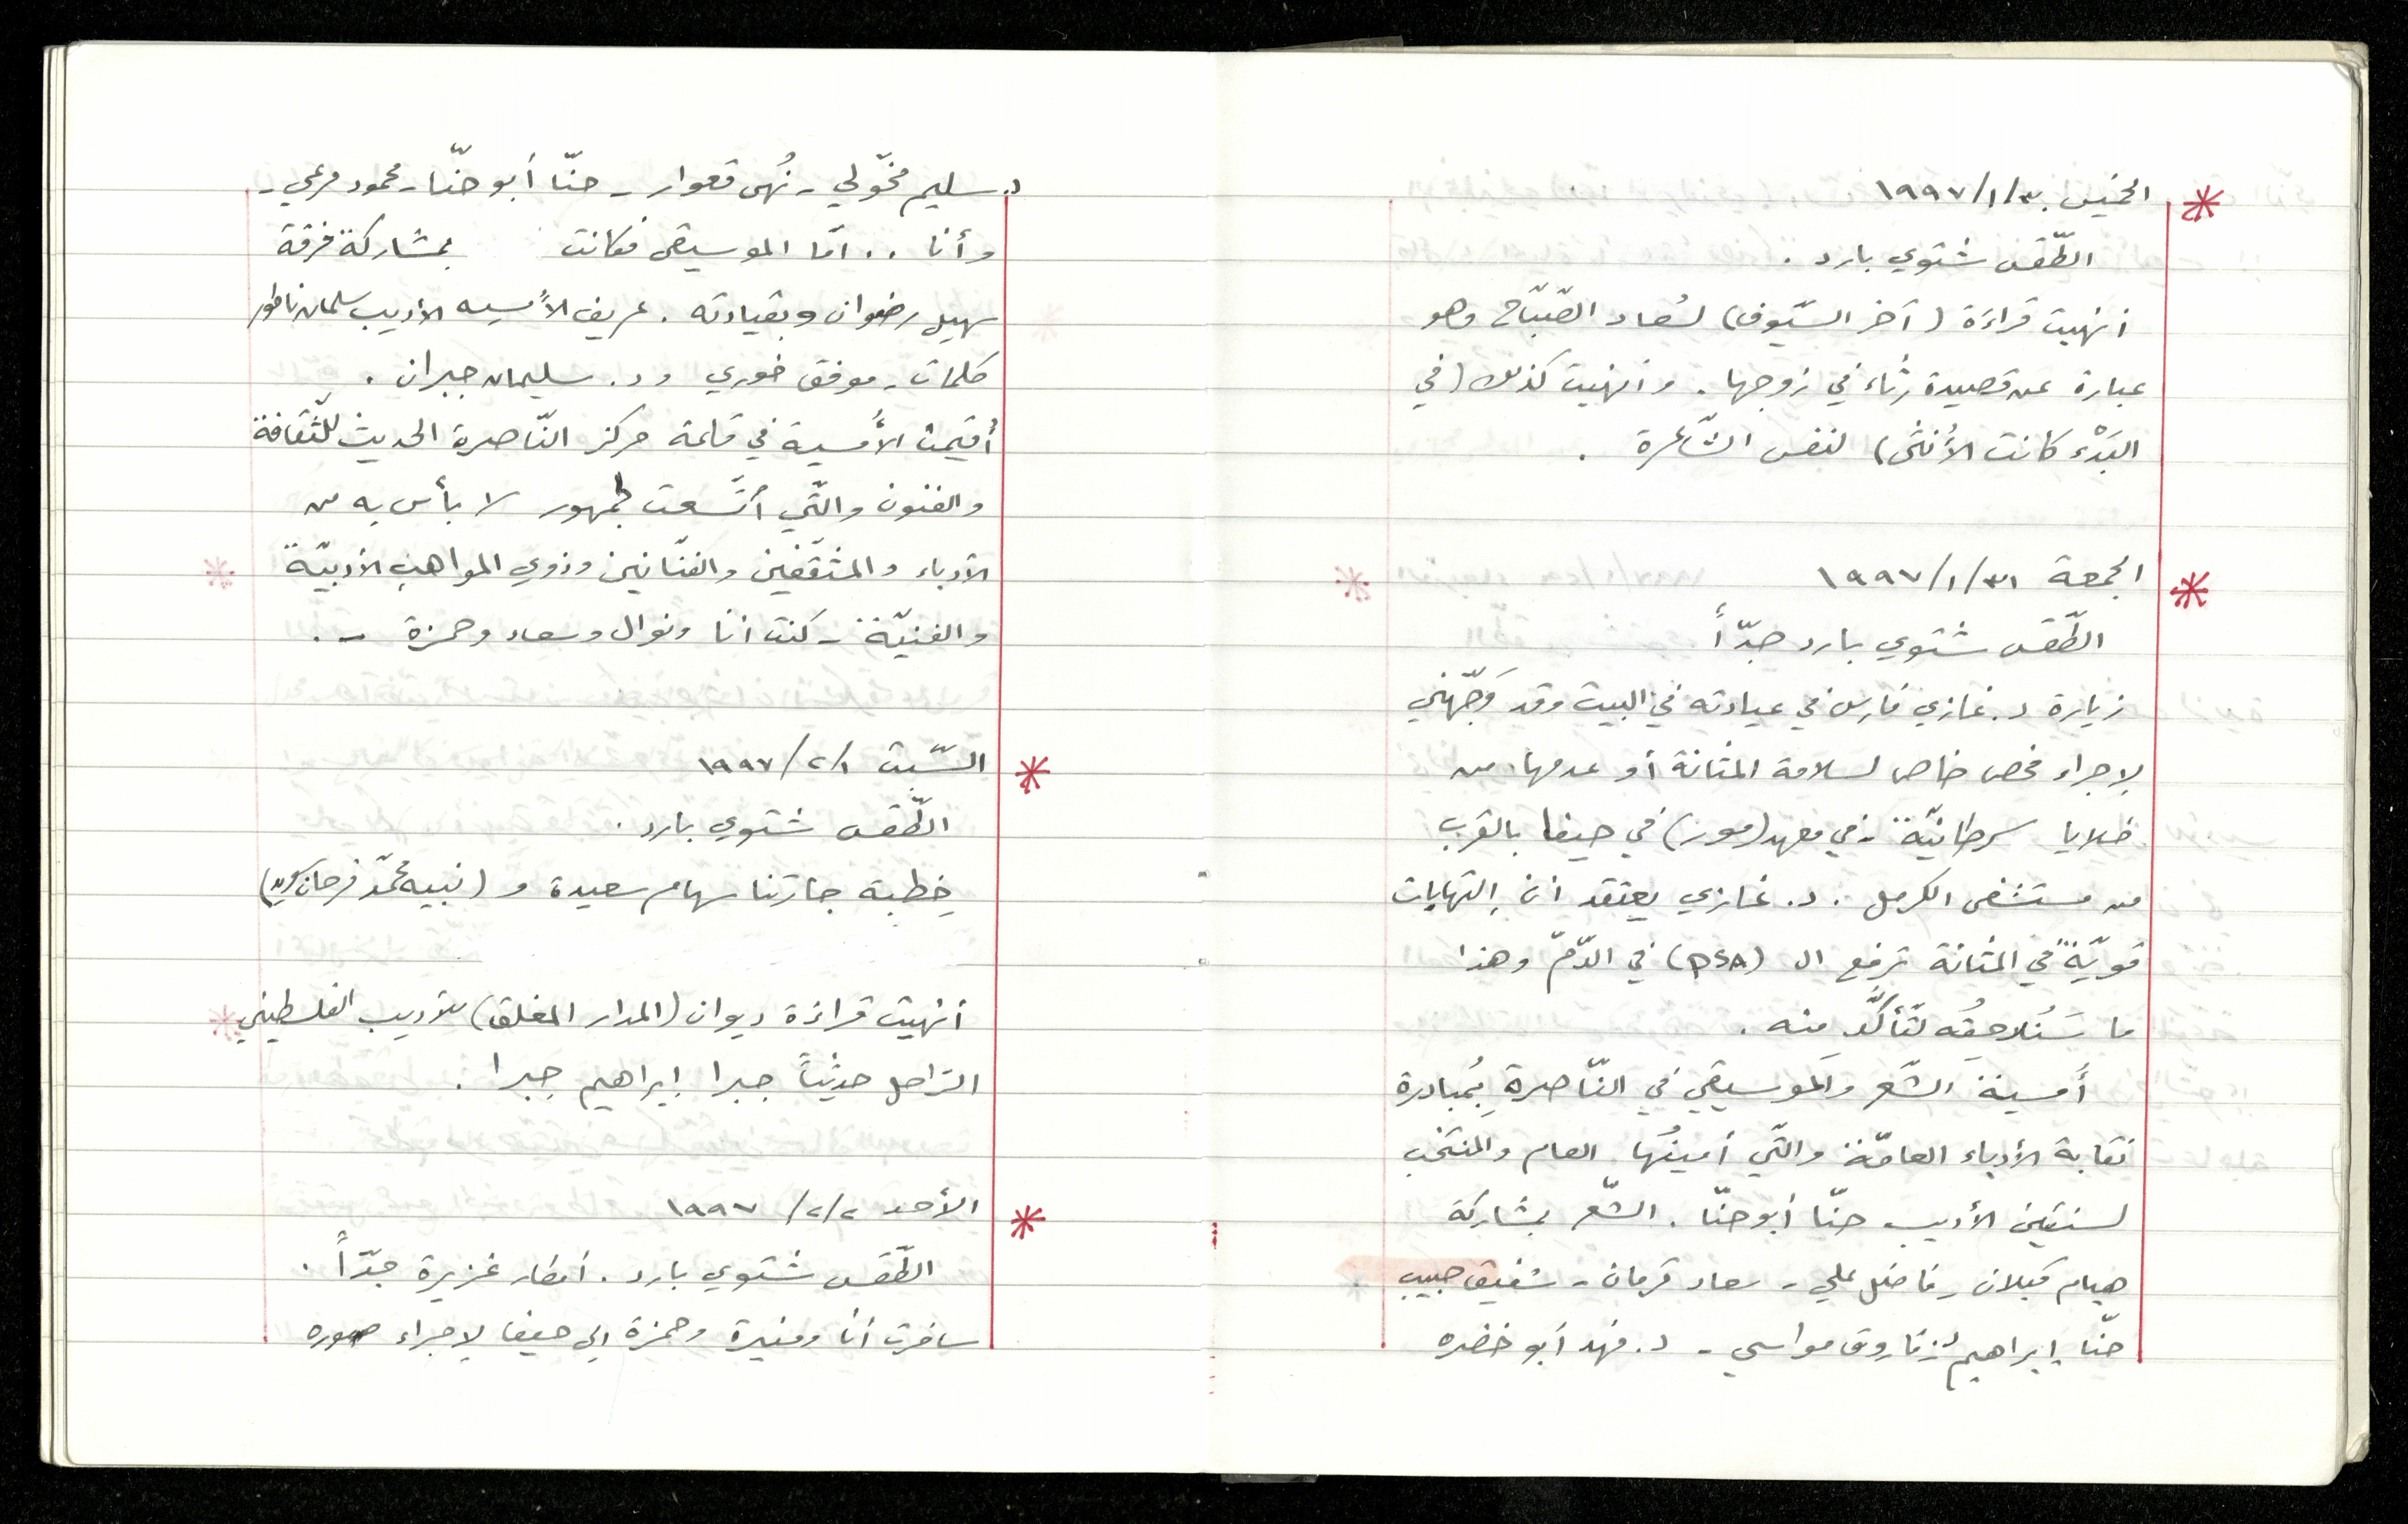 الخميس ١٩٩٧/١/٣٠
الطّقس شتوي بارد .
أنهيت قراءة (آخر السّيوف) لسُعاد الصّبّاح وهو
عبارة عن قصيدة رثاء في زوجها . وأنهيت كذلك (في
البَدْء كانت الأُنثى) لنفس الشّاعرة .
الجمعة ١٩٩٧/١/٣١
الطّقس شتوي بارد جدّاً
زيارة د. غازي فارس في عيادته في البيت وقد وَجّهني
لإجراء فحص خاص لسلامة المثانة أو عدمها من
خلايا سرطانيّة - في معهد (مور) في حيفا بالقرب
من مستشفى الكرمل . د. غازي يعتقد أن إلتهابات
قويّة في المثانة ترفع ال (PSA) في الدّمّ وهذا
ما سَنُلاحقُه لنّتأكّد منه .
أُمسية الشّعر والموسيقى في النّاصرة بمُبادرة
نقابة الأدباء العامّة والتّي أمينُها العام والمنتخب
لسنتين الأديب حنّا أبو حنّا . الشّعر بمشاركة
هيام قبلان - فاضل علي - سعاد قرمان - شفيق حبيب
حنّا إبراهيم د. فاروق مواسي - د. فهد أبو خضره
د. سليم مخّولي - نُهى قعوار - حنّا أبو حنّا - محمود مرعي -
وأنا .. امّا الموسيقى فكانت بمشاركة فرقة
سهيل رضوان وبقيادته . عريف الأُمسيه الأديب سلمان ناطور
كلمات - موفق خوري ود. سليمان جبران .
أُقيمت الأُمسية في قاعة مركز النّاصرة الحديث للثّقافة
والفنون والتّي اتّسعت لجمهور لا بأس به من
الأدباء والمثقّفين والفنّانين وذوي المواهب الأدبيّة
والفنيّة - كنت انا ونوال وسعاد وحمزة - .
السّبت ١٩٩٧/٢/١
الطّقس شتوي بارد .
خِطبة جارتنا سهام سعيدة و (نبيه محمّد فرحان
أنهيت قراءة ديوان (المدار المغلق) للأديب الفلسطيني
الرّاحل حديثاً جبرا إبراهيم جبرا .
الأحد ١٩٩٧/٢/٢
الطّقس شتوي بارد . أمطار غزيرة جدّاً .
سافرت أنا ومنيرة وحمزة إلى حيفا لإجراء صوره